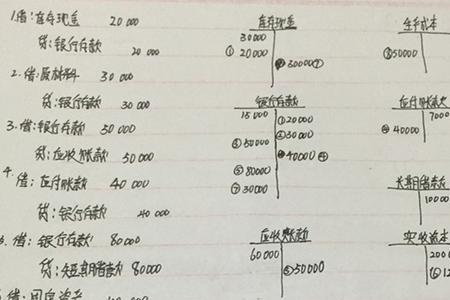 1.借:库存现金 20 000
贷:银行存款 20 000
2.借:原材料 30 000
贷:银行存款 30 000
3.借:银行存款 50 000
贷:应收账款 50 000
4.借:应付账款 40 000
贷:银行存款 40 000
5.借:银行存款 80000
贷:短期借款 80000
库存现金
30000
① 20000
生产成本
50000
银行存款
①20000
②30000
40000 ④
③ 50000
⑤ 80000
⑦ 30000
应付账款
7000
④ 40000
长期借款
10000
应收账款
60000
③50000
实收资本